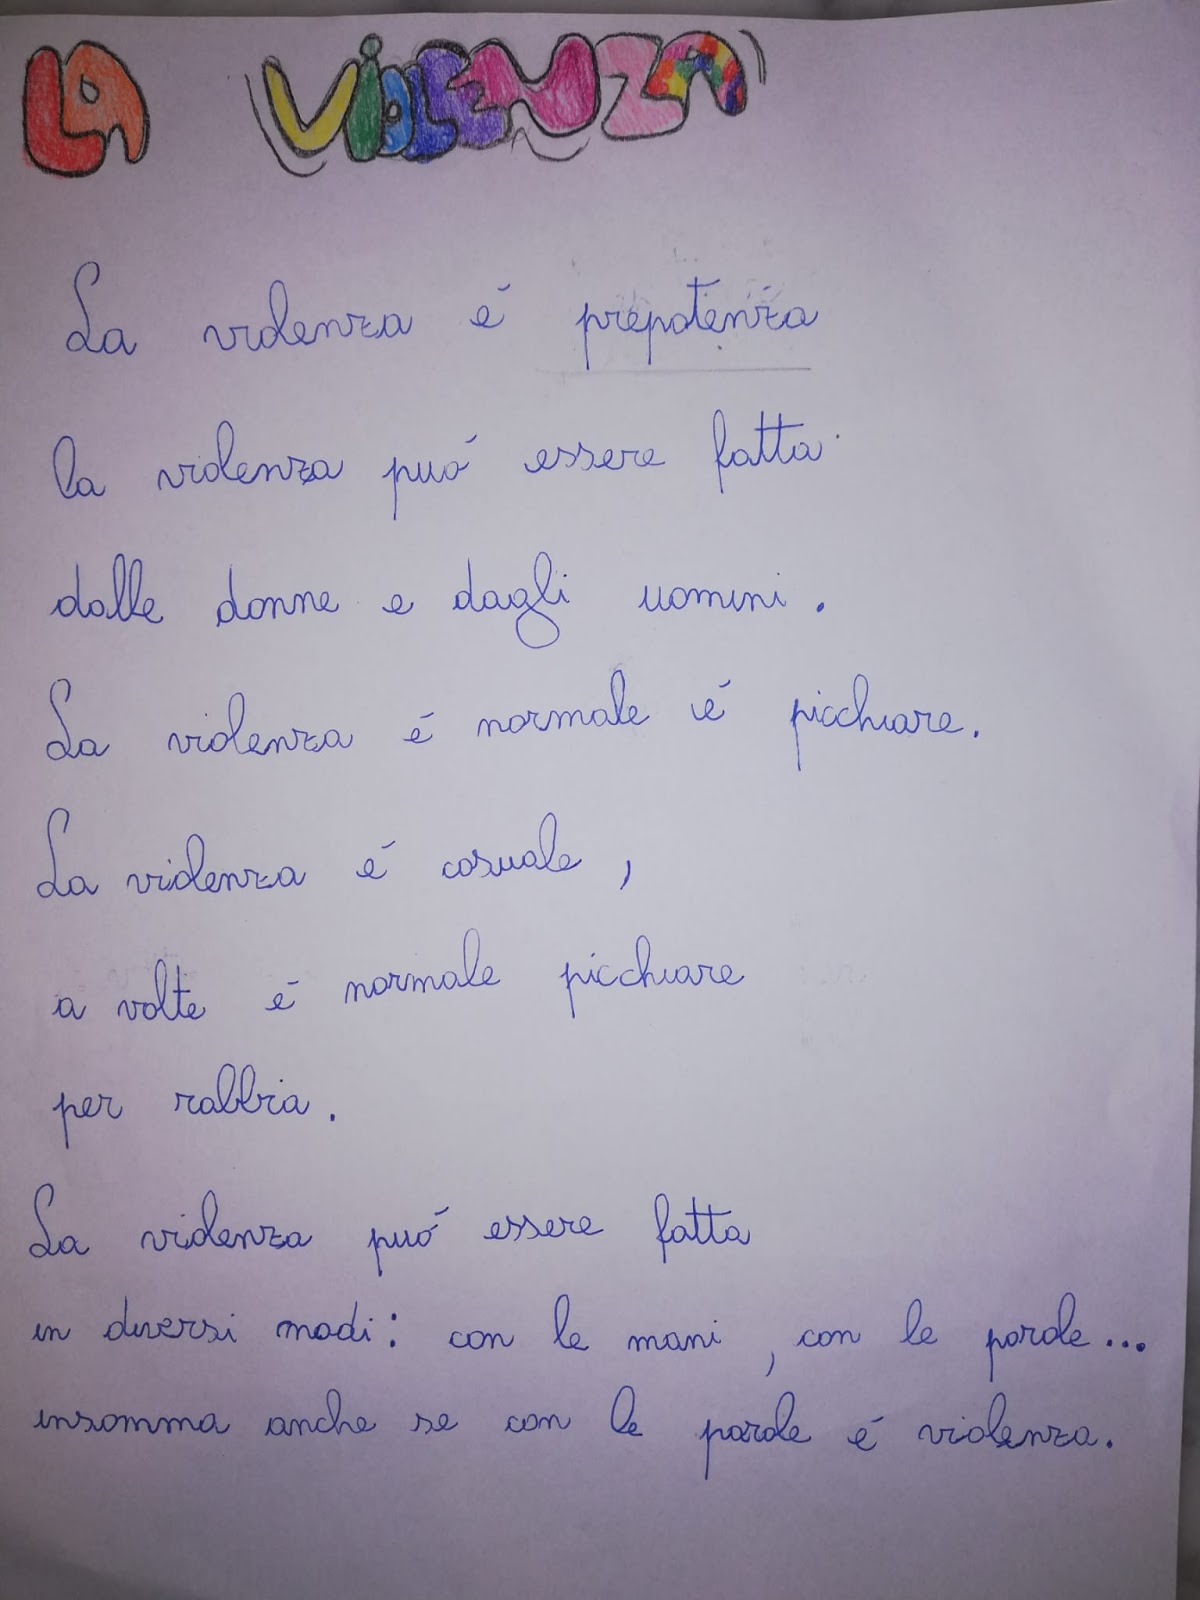 LA VIOLENZA
La violenza é prepotenza
la violenza puó essere fatta
dalle donne e dagli uomini.
La violenza é normale é picchiare.
La violenza é casuale,
a volte é normale picchiare
per rabbia.
La violenza puó essere fatta
in diversi modi: con le mani, con le parole...
insomma anche se con le parole é violenza.